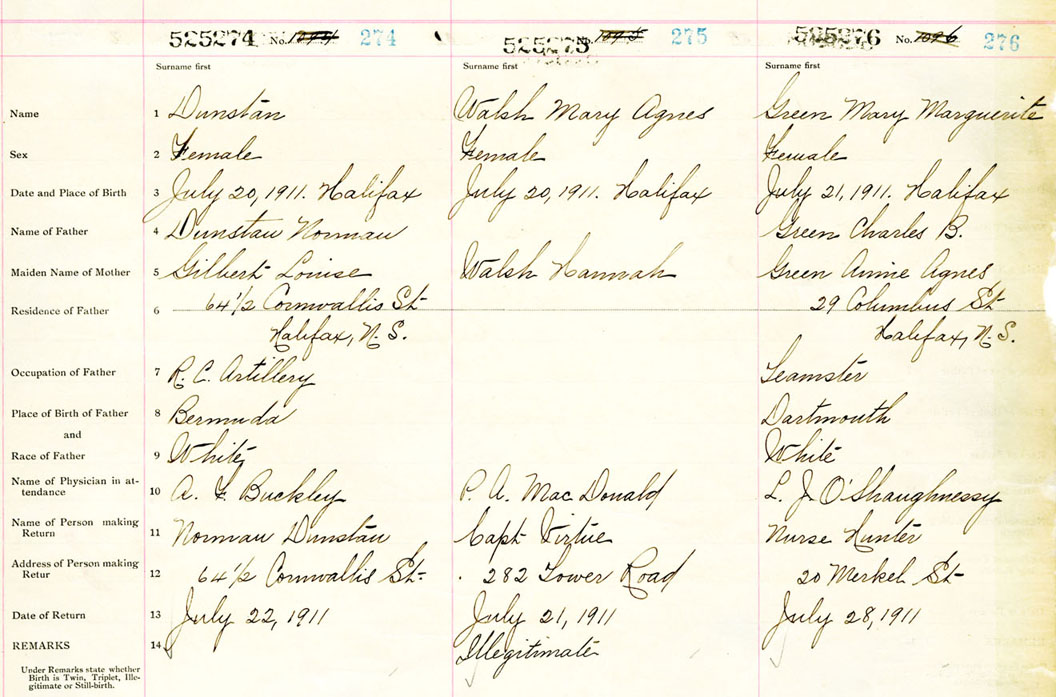 525274 No. 1094 274 525275 No. 1095 275 525276 No. 1096 276
Surname first Surname first Surname first
Name 1 Dunstan Walsh Mary Agnes Green Mary Marguerite
Sex 2 Female Female Female
Date and Place of Birth 3 July 20, 1911. Halifax July 20, 1911. Halifax July 21, 1911. Halifax
Name of Father 4 Dunstan Norman Green Charles B.
Maiden Name of Mother 5 Gilbert Louise Walsh Hannah Green Annie Agnes
Residence of Father 6 64 1/2 Cornwallis St 29 Columbus St
Halifax, N. S. Halifax, N. S.
Occupation of Father 7 R. C. Artillery Teamster
Place of Birth of Father 8 Bermuda Dartmouth
and
Race of Father 9 White White
Name of Physician in at-
tendance 10 A. F. Buckley P. A. Mac Donald L. J. O'Shaughnessy
Name of Person making
Return 11 Norman Dunstan Capt Virtue Nurse Hunter
Address of Person making
Retur 12 64 1/2 Cornwallis St. 282 Tower Road 20 Merkel St
Date of Return 13 July 22, 1911 July 21, 1911 July 28, 1911
REMARKS 14 Illegitimate
Under Remarks state whether
Birth is Twin, Triplet, Ille-
gitimate or Still-birth.